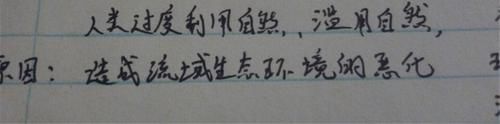 人类过度利用自然，滥用自然，
原因：造成流域生态环境的恶化